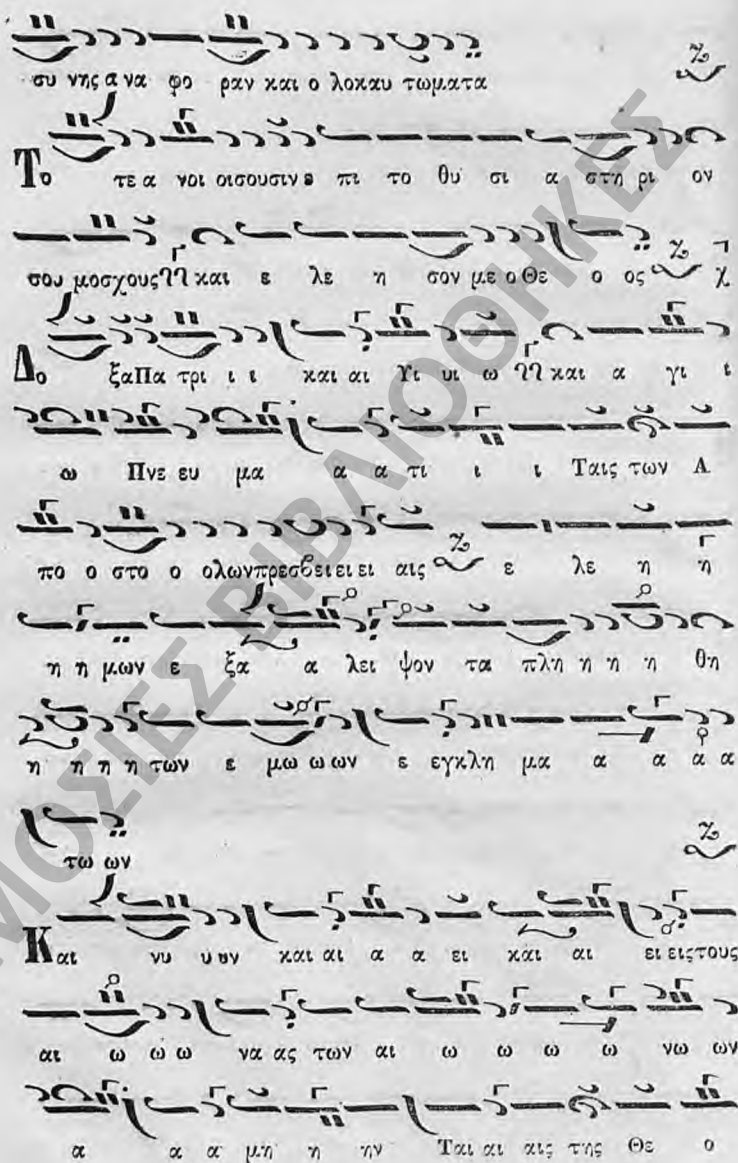 συ νης α να φο ραν και ο λοκαυ τωματα
Το τε α νοι οισουσιν ε πι το θυ σι α στη ρι ον
σου μοσχους και ε λε η σον με ο Θε ο ος
Δο ξα Πα τρι ι ι και αι Υι υι ω και α γι ι
ω Πνε ευ μα α α τι ι ι Ταις των Α
πο ο στο ο ολων πρεσβει ει ει ει αις ε λε η η
η η μων ε ξα α λει ψον τα πλη η η η θη
η η η η των ε μω ω ων ε εγκλη μα α α α α
τω ων
Και νυ υ υν και αι α α ει και αι ει εις τους
αι ω ω ω να ας των αι ω ω ω ω νω ων
α α α μη η ην Ται αι αις της Θε ο
ΜΟΣΙΕΣ ΒΙΒΛΙΟΘΗΚΕΣ